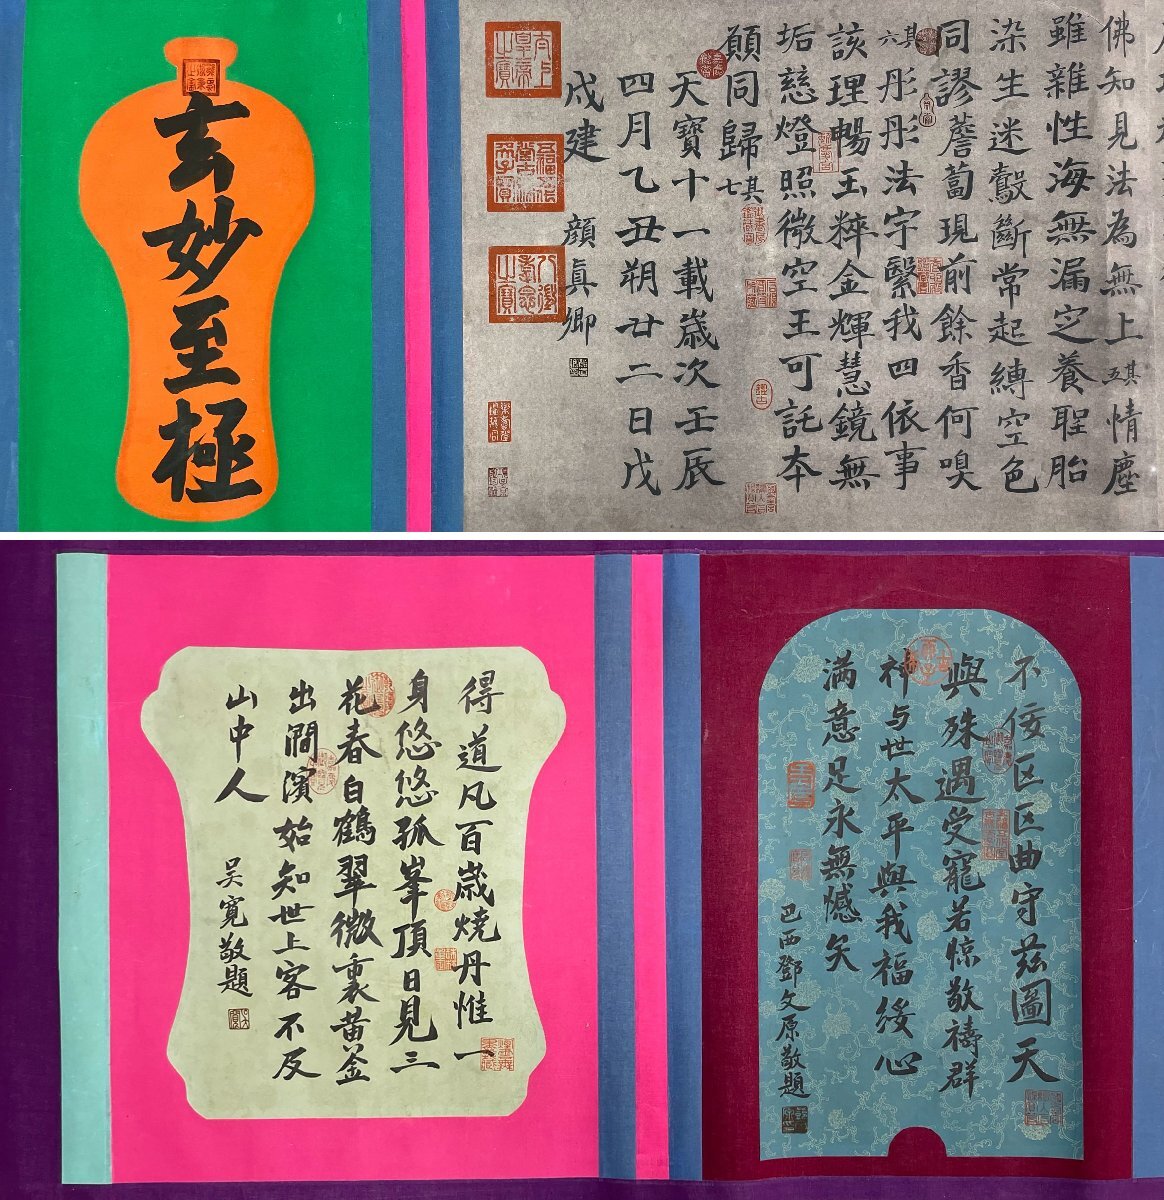 玄妙至極
佛知見法為無上其五情塵
雖雜性海無漏定養聖胎
染生迷轂斷常起縛空色
同謬薝蔔現前餘香何嗅
其六彤彤法宇繫我四依事
該理暢玉粹金輝慧鏡無
垢慈燈照微空王可託本
願同歸其七
天寶十一載歲次壬辰
四月乙丑朔廿二日戊
戌建 顏真卿
太上皇帝之寶
八徵耄念之寶
不佞区区曲守茲圖天
與殊遇受寵若惊敬禱群
神与世太平與我福綏心
满意足永無憾矣
巴西鄧文原敬題
得道凡百歲燒丹惟一
身悠悠孤峯頂日見三
花春白鶴翠微裏黃金
出澗濱始知世上客不及
山中人
吳寬敬題